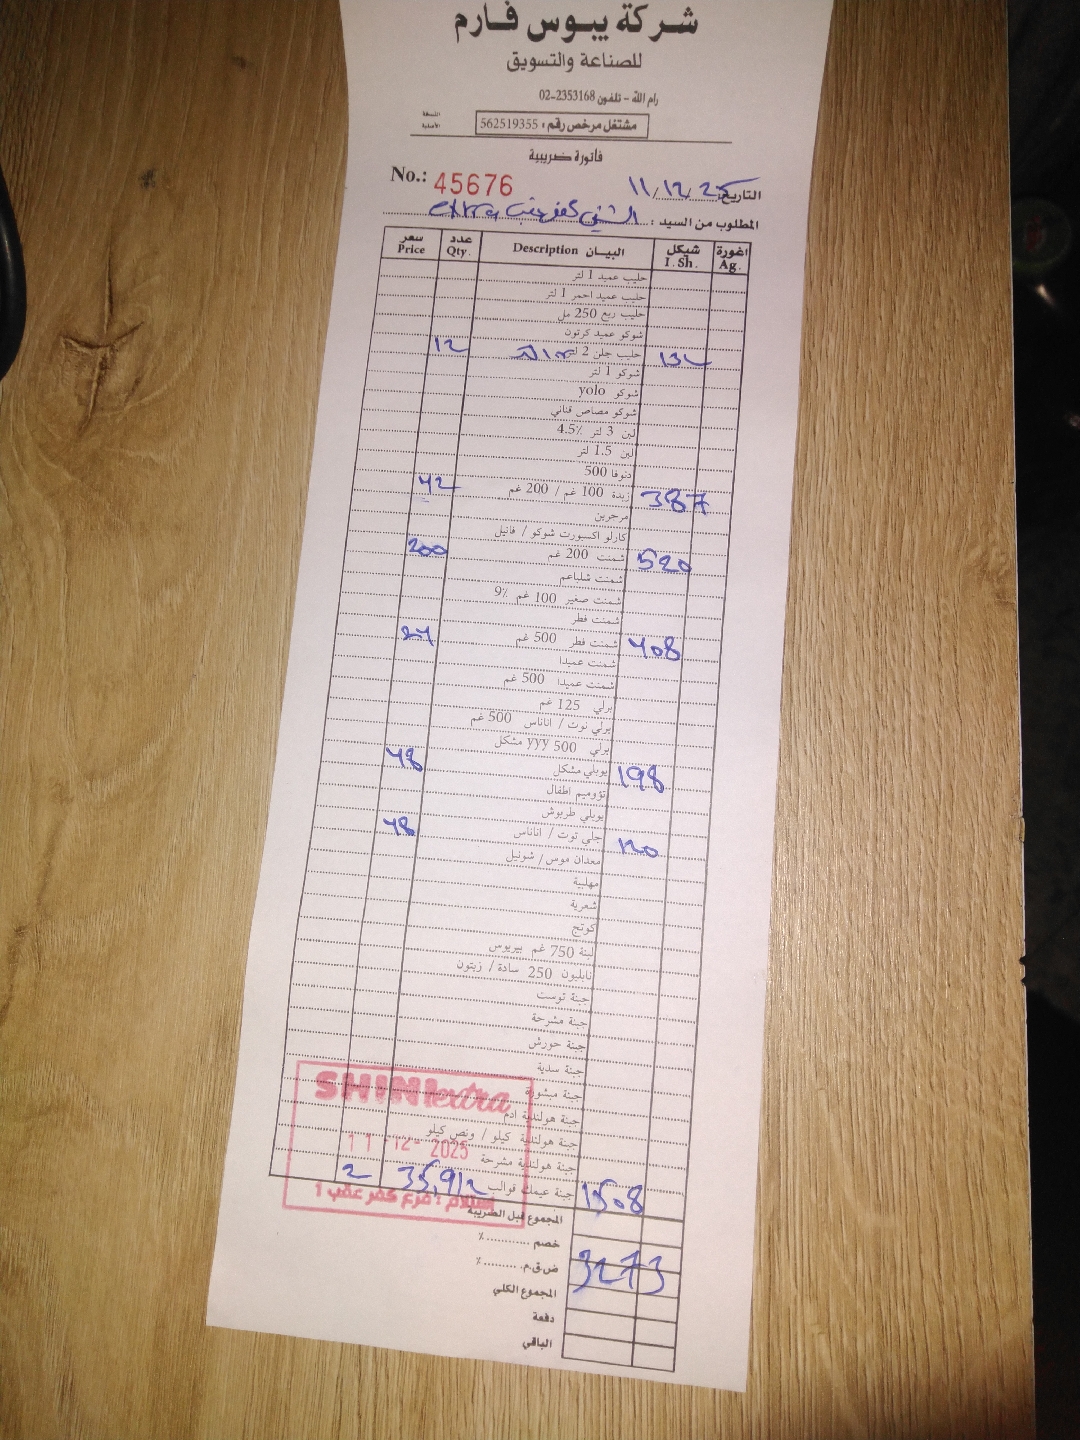 شركة يبوس فارم
للصناعة والتسويق
رام الله - تلفون 02-2353168
النسخة الأصلية
مشتغل مرخص رقم: 562519355
فاتورة ضريبية
No.: 45676
التاريخ 11/12/25
المطلوب من السيد: الشني كفر عقب extra
سعر Price عدد Qty. البيان Description شيكل I. Sh. اغورة Ag.
حليب عميد 1 لتر
حليب عميد احمر 1 لتر
حليب ربع 250 مل
شوكو عميد كرتون
12 حليب جلن 2 لتر 132
شوكو 1 لتر
شوكو yolo
شوكو مصاص قناني
لبن 3 لتر 4.5%
لبن 1.5 لتر
دنوفا 500
42 زبدة 100 غم / 200 غم 387
مرجرين
كارلو اكسبورت شوكو / فانيل
200 شمنت 200 غم 520
شمنت شلباعم
شمنت صغير 100 غم 9%
شمنت فطر
24 شمنت فطر 500 غم 408
شمنت عميدا
شمنت عميدا 500 غم
برلي 125 غم
برلي توت / اناناس 500 غم
برلي 500 yyy مشكل
48 يوبلي مشكل 198
تؤوميم اطفال
يوبلي طربوش
48 جلي توت / اناناس 120
معدان موس / شونيل
مهلبية
شعرية
كوتج
لبنة 750 غم بيريوس
نابليون 250 سادة / زيتون
جبنة توست
جبنة مشرحة
جبنة حورش
جبنة سدية
جبنة مبشورة
جبنة هولندية ادم
جبنة هولندية كيلو / ونص كيلو
جبنة هولندية مشرحة
2 35,912 جبنة عيمك قوالب 1508
SHINI extra
11-12-2025
استلام: فرع كفر عقب 1
المجموع قبل الضريبة
خصم ........... %
ض.ق.م. ......... % 3273
المجموع الكلي
دفعة
الباقي